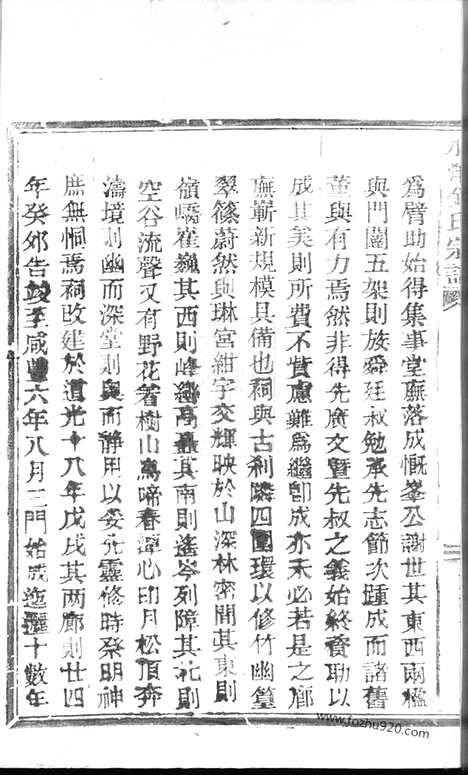 為臂助始得集事堂廡落成慨峯公謝世其東西兩楹
與門闥五架則族舜廷叔勉承先志節次踵成而諸舊
董與有力焉然非得先廣文暨先叔之義始終資助以
成其美則所費不貲慮難為繼卽成亦未必若是之廊
廡嶄新規模具備也祠與古刹隣四圍環以修竹幽篁
翠篠蔚然與琳宮紺宇交輝映於山深林密間其東則
嶺嶠崔巍其西則峰巒高矗其南則遙岑列障其北則
空谷流聲又有野花著樹山鳥啼春潭心印月松頂奔
濤境則幽而深堂則奥而静用以妥先靈修時祭明神
庶無恫焉祠改建於道光十八年戊戌其兩廊則廿四
年癸卯告竣至咸豐六年八月三門始成迤邐十數年
氏宗譜
www.fozhu920.com